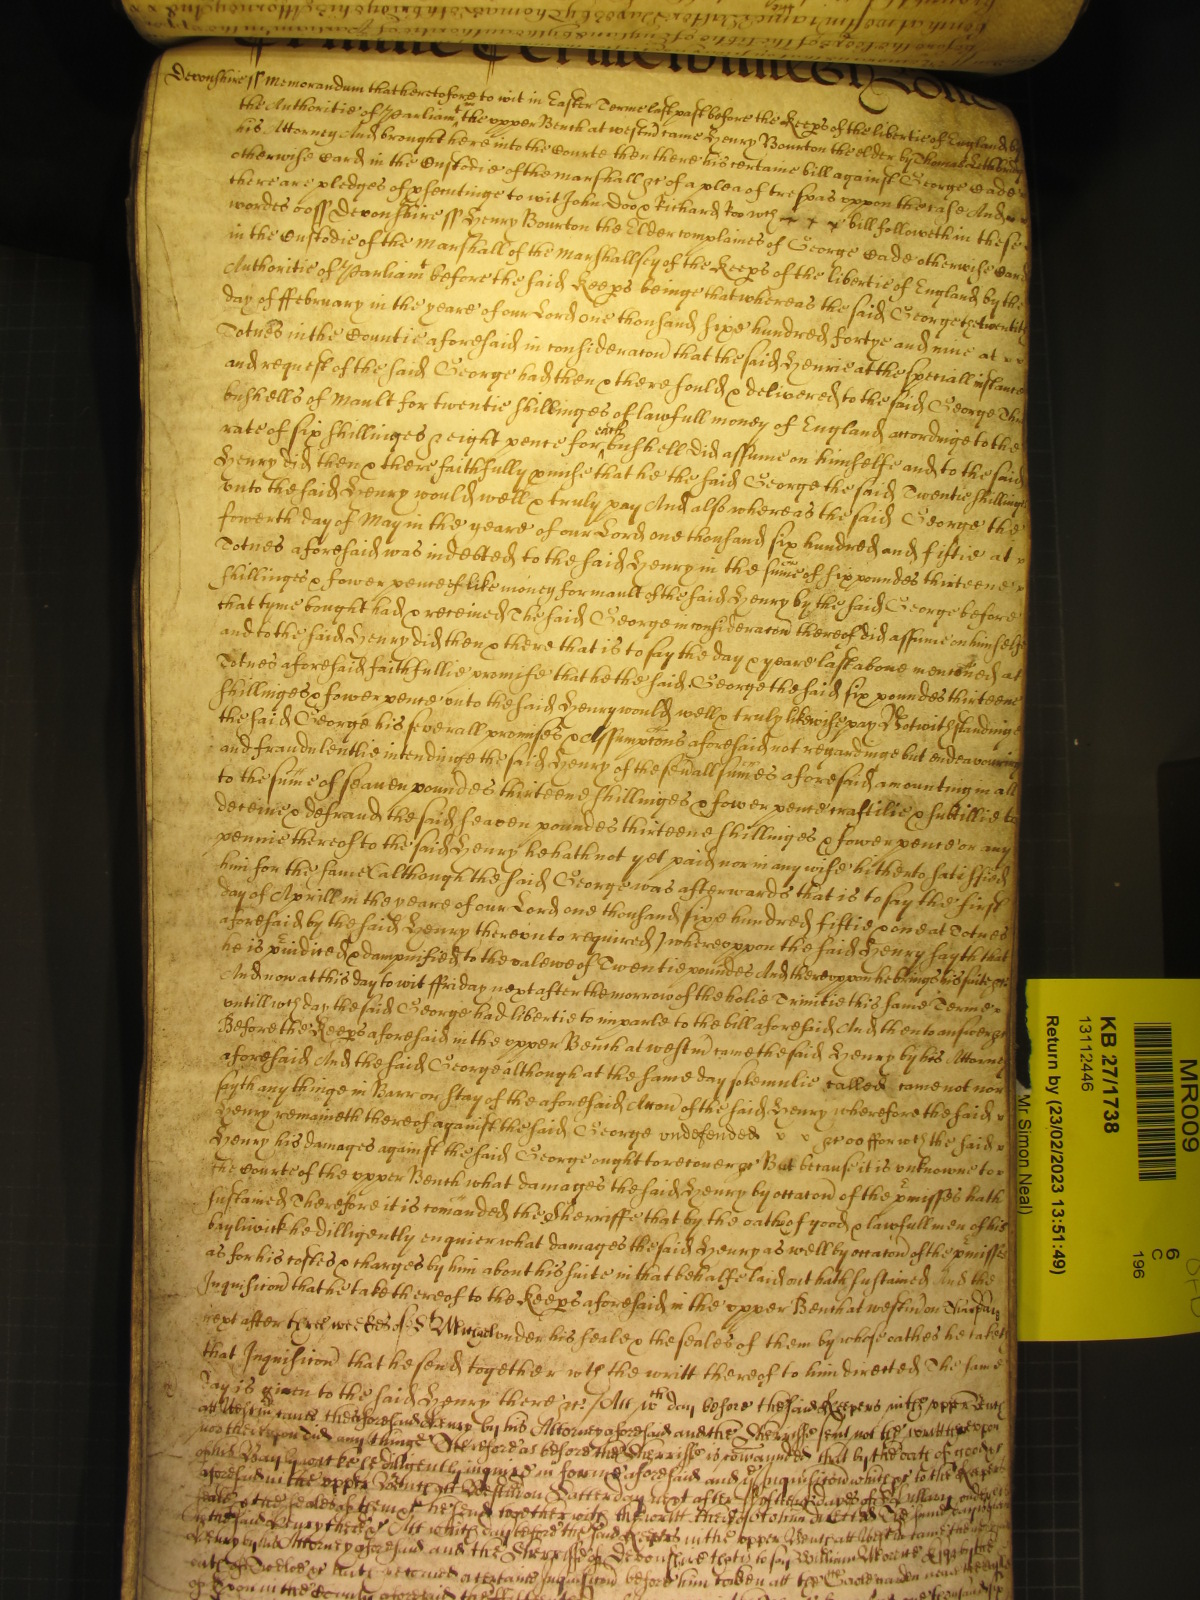 Devonshire ss Memorandum that heretofore to wit in Easter Terme last past before the Keeps of the libertie of England by
the Authoritie of Parliamt in the upper Bench at westm came Henry Bourton the elder by Thomas
his Attorney And brought here into the Courte then there his certaine bill against George Eade
otherwise Eard in the Custodie of the marshall &c of a plea of trespas uppon the case And
there are pledges of psecutinge to wit John Doo & Richard Roo wch bill followeth in these
wordes ss Devonshire ss Henry Bourton the Elder complaines of George Eade otherwise Eard
in the Custodie of the Marshall of the Marshallsey of the Keeps of the libertie of England by the
Authoritie of Parliamt before the said Keeps beinge that whereas the said George
day of ffebruary in the yeare of our Lord one thousand sixe hundred fortye and nine at
Totnes in the Countie aforesaid in consideracon that the said Henrie at the speciall instance
and request of the said George had then & there sould & delivered to the said George
bushells of Mault for twentie shillinges of lawfull money of England accordinge to the
rate of six shillinges & eight pence for each bushell did assume on himselfe and to the said
Henry did then & there faithfully pmise that he the said George the said Twentie shillinges
unto the said Henry would well & truly pay And also whereas the said George the
fowerth day of May in the yeare of our Lord one thousand six hundred and fiftie at
Totnes aforesaid was indebted to the said Henry in the sume of six poundes thirteene
shillinges & fower pence of like money for mault of the said Henry by the said George before
that tyme bought had & received The said George in consideracon thereof did assume on himselfe
and to the said Henry did then & there that is to say the day & yeare last above menconed at
Totnes aforesaid faithfullie promise that he the said George the said six poundes thirteene
shillinges & fower pence unto the said Henry would well & truly likewise pay Notwithstandinge
the said George his severall promises & Assumptons aforesaid not regardinge but endeavouring
and fraudulentlie intendinge the said Henry of the sevall sumes aforesaid amounting in all
to the sume of seaven poundes thirteene shillinges & fower pence craftilie & subtillie to
deceive & defraud the said seaven poundes thirteene shillinges & fower pence or any
pennie thereof to the said Henry he hath not yet paid nor in any wise hitherto satisfied
him for the same (although the said George was afterwards that is to say the first
day of Aprill in the yeare of our Lord one thousand sixe hundred fiftie & one at Totnes
aforesaid by the said Henry thereunto required) whereuppon the said Henry sayth that
he is piudiced & dampnified to the valewe of Twentie poundes And thereuppon he brings his suite &c
And now at this day to wit ffriday next after the morrow of the holie Trinitie this same Terme
untill wch day the said George had libertie to imparle to the bill aforesaid And then to answer &c
Before the Keeps aforesaid in the upper Bench at westm came the said Henry by his Attorney
aforesaid And the said George although at the same day solemnlie called came not nor
sayth any thinge in Barr or stay of the aforesaid Accon of the said Henry wherefore the said
Henry remaineth thereof against the said George undefended &c Wherefore the said
Henry his damages against the said George ought to recover &c But because it is unknowne to
the Courte of the upper Bench what damages the said Henry by occacon of the pmisses hath
sustained Therefore it is comanded the Sherriffe that by the oathes of good & lawfull men of his
bayliwick he dilligently enquier what damages the said Henry as well by occacon of the pmisses
as for his costes & charges by him about his suite in that behalfe laid out hath sustained And the
Inquisicon that he take thereof to the Keeps aforesaid in the upper Bench at westm on
next after three weekes of St Michael under his seale & the seales of them by whose oathes he taketh
that Inquisicon that he send together wth the writt thereof to him directed The same
day is given to the said Henry there &c Att wch day before the said Keepers in the upper Bench
att Westm came the aforesaid Henry by his Attorney aforesaid and the Sherriffe sent not the writt thereof
nor thereupon did any thinge Therefore as before the Sherriffe is comaunded that by the oath of good &c
of his Bayliwick he dilligently inquire in forme aforesaid and the Inquisicon which &c to the Keepers
aforesaid in the upper Bench att Westm on Satterday next after under
seale & the seales of them &c he send together with the writt thereof to him directed The same day is given
to the said Henry there &c Att which day before the said Keepers in the upper Bench att Westm came the
Henry by his Attorney aforesaid and the Sherriffe of Devonshire that is to say William
before him taken att the
in the County aforesaid
MR009
6
C
196
KB 27/1738
13112446
Return by (23/02/2023 13:51:49)
Mr Simon Neal)